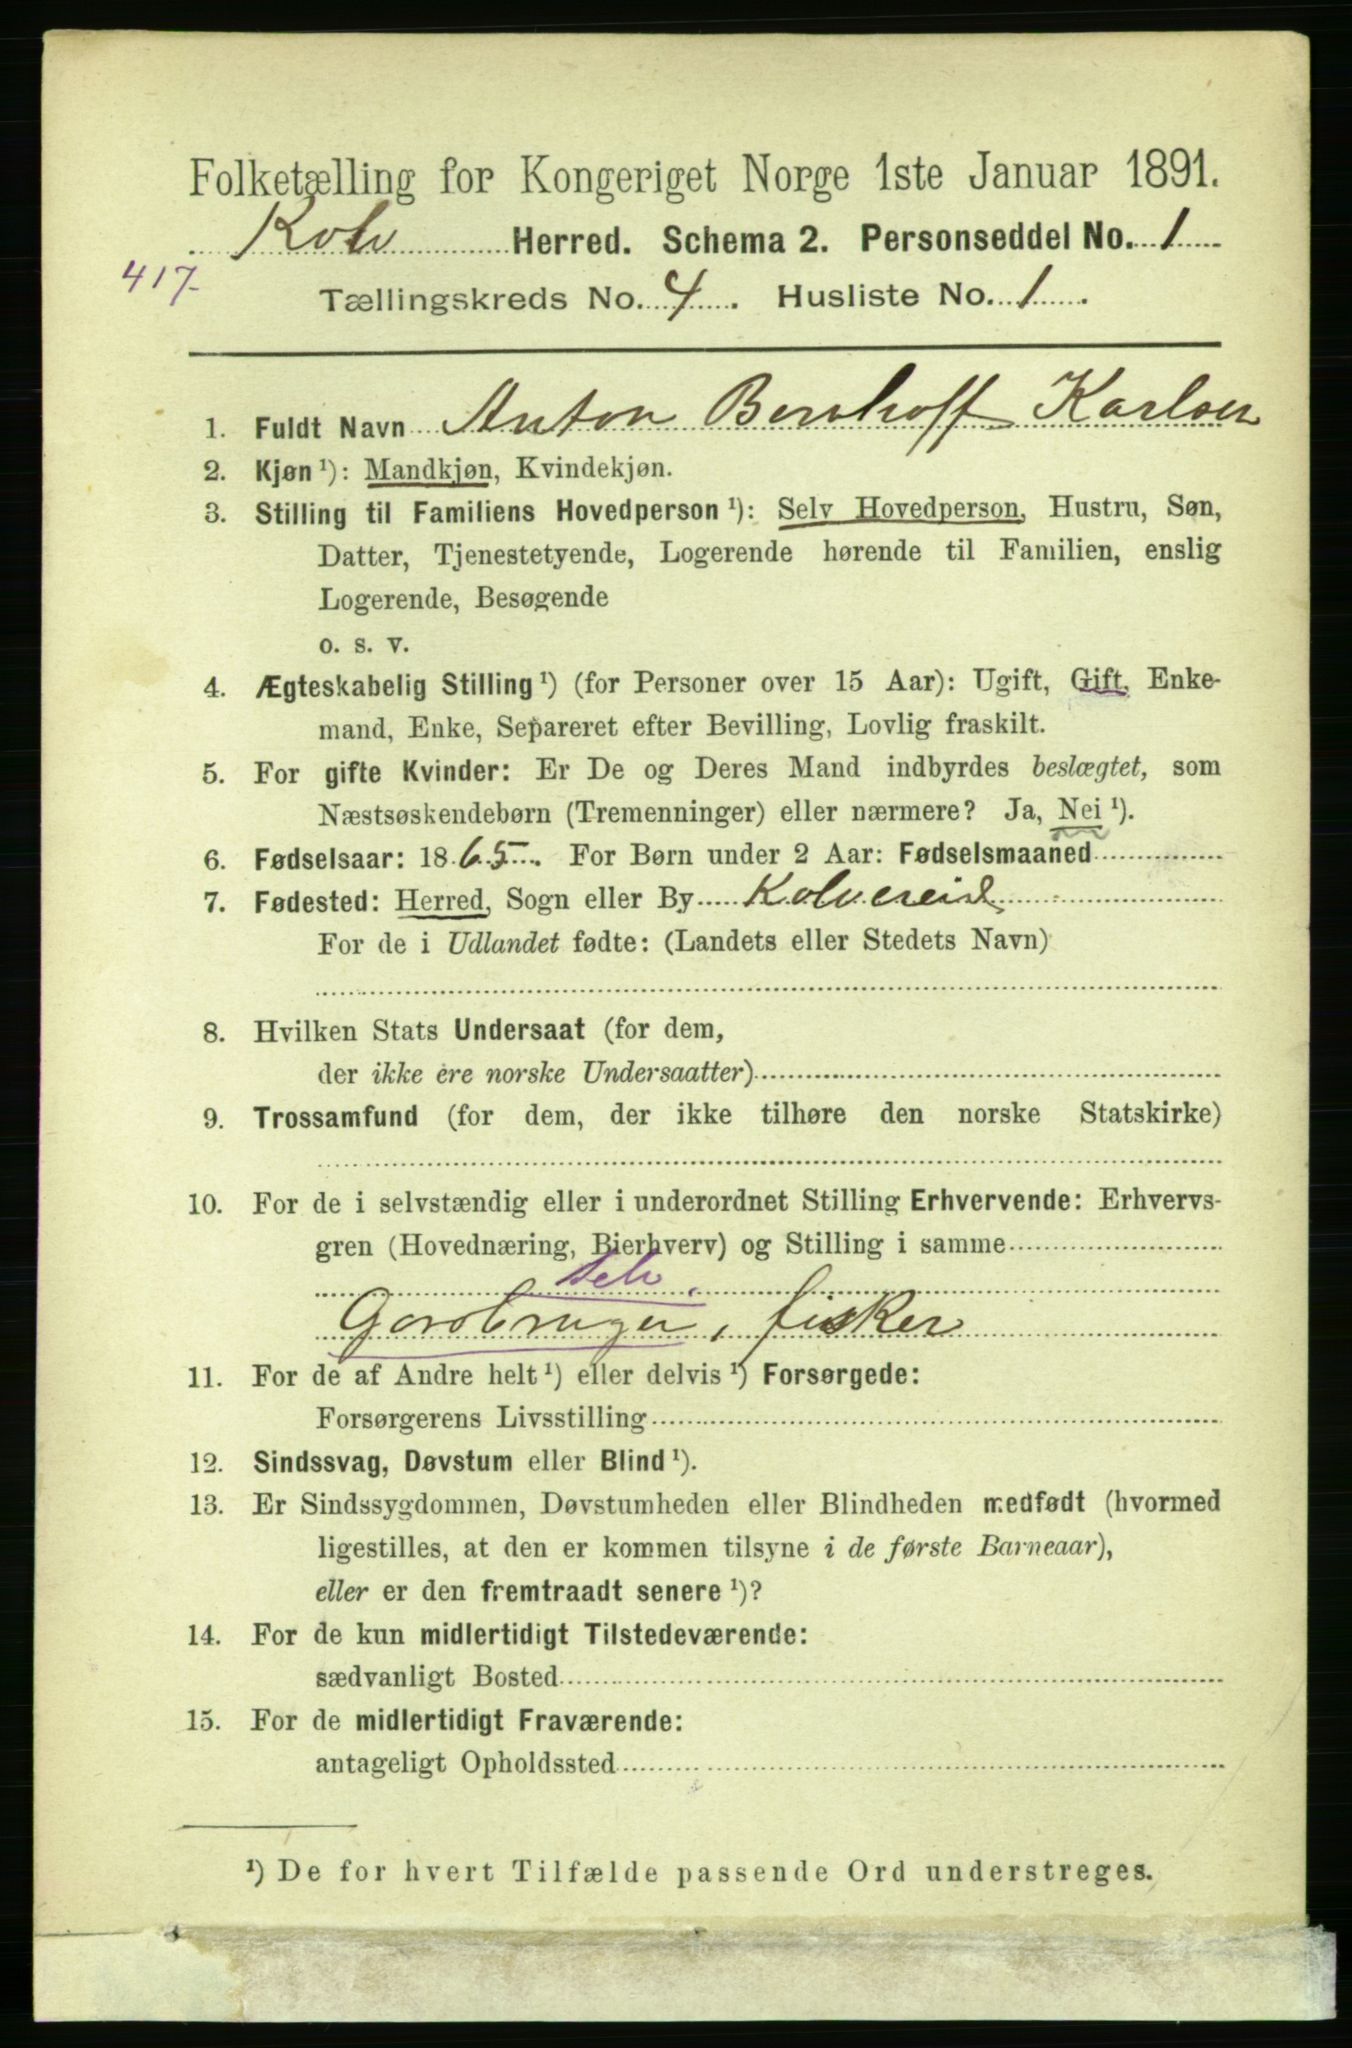 Folketælling for Kongeriget Norge 1ste Januar 1891.
Kolv Herred. Schema 2. Personseddel No. 1
417.
Tællingskreds No. 4. Husliste No. 1.
1. Fuldt Navn Anton Bernhoff Karlsen
2. Kjøn ¹): Mandkjøn, Kvindekjøn.
3. Stilling til Familiens Hovedperson ¹): Selv Hovedperson, Hustru, Søn,
Datter, Tjenestetyende, Logerende hørende til Familien, enslig
Logerende, Besøgende
o. s. v.
4. Ægteskabelig Stilling ¹) (for Personer over 15 Aar): Ugift, Gift, Enke-
mand, Enke, Separeret efter Bevilling, Lovlig fraskilt.
5. For gifte Kvinder: Er De og Deres Mand indbyrdes beslægtet, som
Næstsøskendebørn (Tremenninger) eller nærmere? Ja, Nei ¹).
6. Fødselsaar: 1865. For Børn under 2 Aar: Fødselsmaaned
7. Fødested: Herred, Sogn eller By Kolvereid
For de i Udlandet fødte: (Landets eller Stedets Navn)
8. Hvilken Stats Undersaat (for dem,
der ikke ere norske Undersaatter)
9. Trossamfund (for dem, der ikke tilhøre den norske Statskirke)
10. For de i selvstændig eller i underordnet Stilling Erhvervende: Erhvervs-
gren (Hovednæring, Bierhverv) og Stilling i samme
selv.
Gardbruger, fisker
11. For de af Andre helt ¹) eller delvis ¹) Forsørgede:
Forsørgerens Livsstilling
12. Sindssvag, Døvstum eller Blind ¹).
13. Er Sindssygdommen, Døvstumheden eller Blindheden medfødt (hvormed
ligestilles, at den er kommen tilsyne i de første Barneaar),
eller er den fremtraadt senere ¹)?
14. For de kun midlertidigt Tilstedeværende:
sædvanligt Bosted
15. For de midlertidigt Fraværende:
antageligt Opholdssted
¹) De for hvert Tilfælde passende Ord understreges.